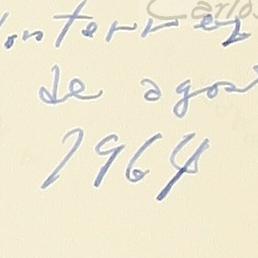 Carlos
onterrey
de agos
1964